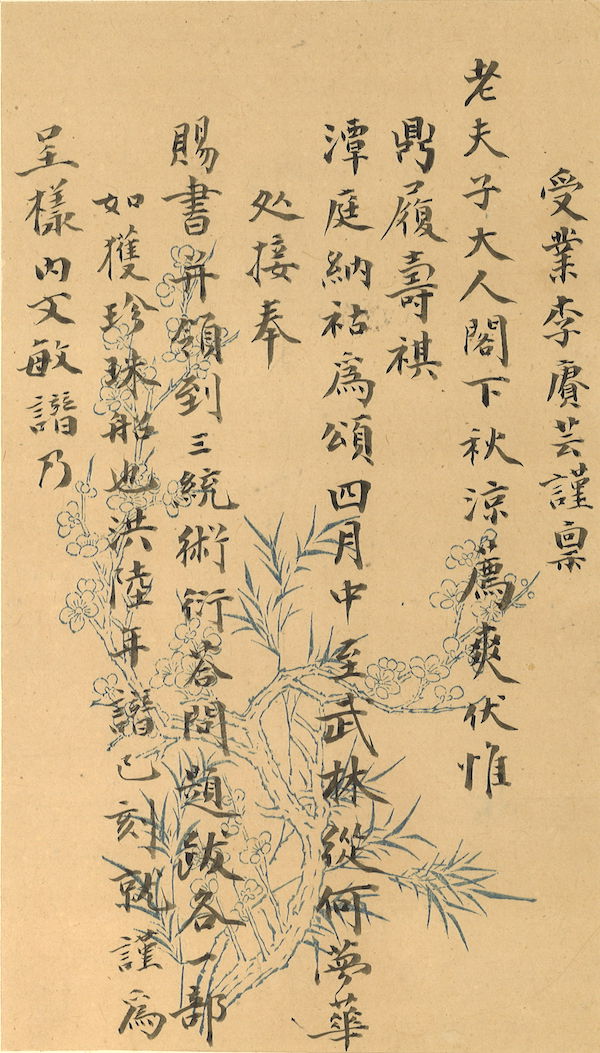 受業李賡芸謹稟
老夫子大人閣下秋涼薦爽伏惟
鼎履壽祺
潭庭納祜爲頌四月中至武林從何夢華
处接奉
賜書并領到三統術衍答問題跋各一部
如獲珍珠船也洪陸年譜已刻就謹爲
呈樣内文敏譜乃